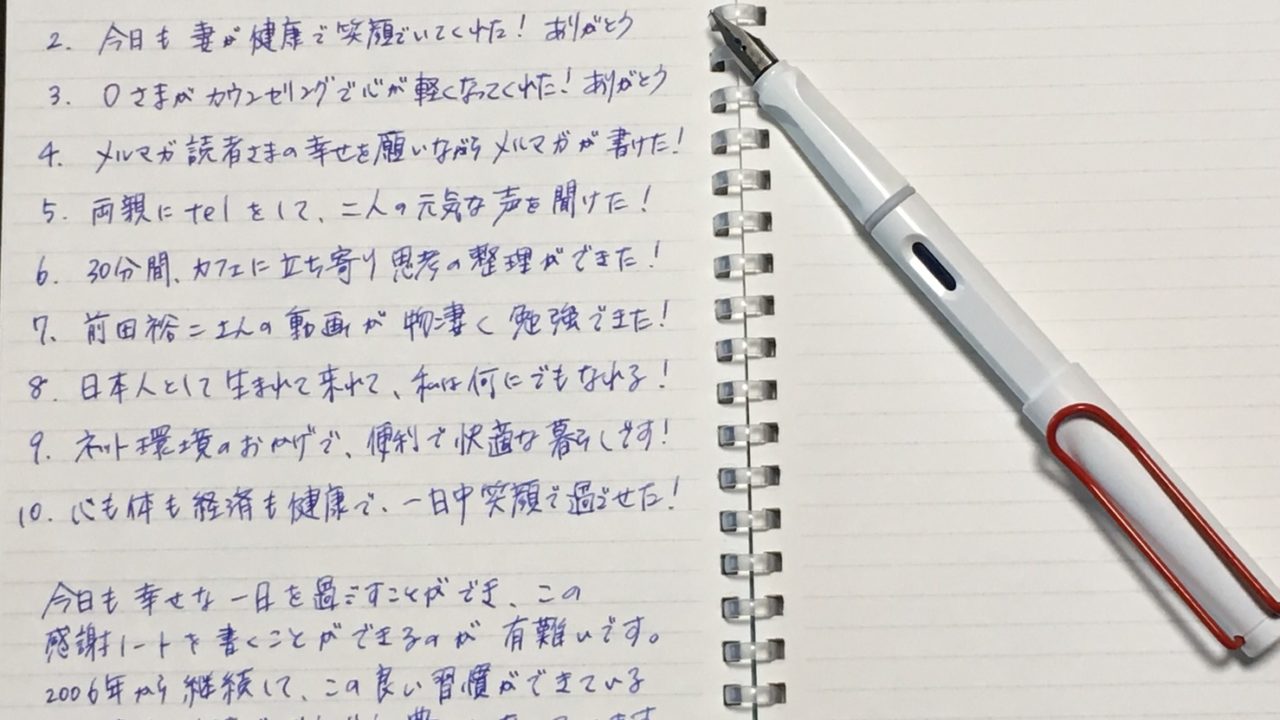 2. 今日も妻が健康で笑顔でいてくれた! ありがとう
3. Oさまがカウンセリングで心が軽くなってくれた! ありがとう
4. メルマガ読者さまの幸せを願いながらメルマガが書けた!
5. 両親にtelをして、二人の元気な声を聞けた!
6. 30分間、カフェに立ち寄り思考の整理ができた!
7. 前田裕二さんの動画が物凄く勉強できた!
8. 日本人として生まれて来れて、私は何にでもなれる!
9. ネット環境のおかげで、便利で快適な暮らしです!
10. 心も体も経済も健康で、一日中笑顔で過ごせた!
今日も幸せな一日を過ごすことができ、この
感謝ノートを書くことができるのが有難いです。
2006年から継続して、この良い習慣ができている